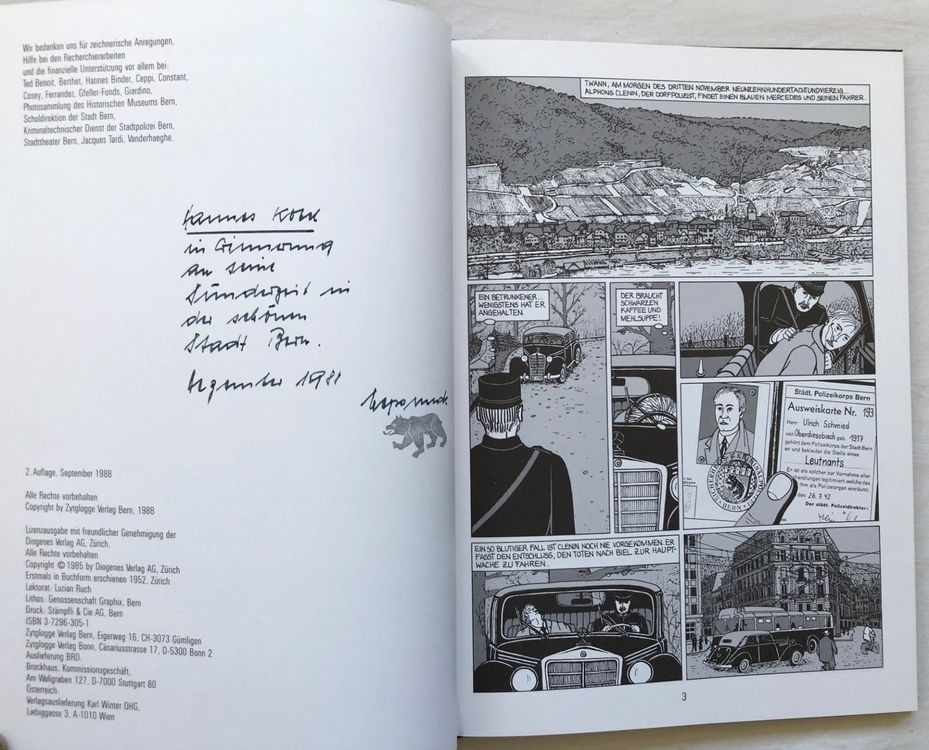 Wir bedanken uns für zeichnerische Anregungen,
Hilfe bei den Recherchierarbeiten
und die finanzielle Unterstützung vor allem bei:
Ted Benoit, Berthet, Hannes Binder, Ceppi, Constant,
Cosey, Ferrandez, Gfeller-Fonds, Giardino,
Photosammlung des Historischen Museums Bern,
Schuldirektion der Stadt Bern,
Kriminaltechnischer Dienst der Stadtpolizei Bern,
Stadttheater Bern, Jacques Tardi, Vanderhaeghe.
Hannes
in Erinnerung
an seine
in
der schönen
Stadt Bern.
Dezember 1988
2. Auflage, September 1988
Alle Rechte vorbehalten
Copyright by Zytglogge Verlag Bern, 1988
Lizenzausgabe mit freundlicher Genehmigung der
Diogenes Verlag AG, Zürich.
Alle Rechte vorbehalten
Copyright © 1985 by Diogenes Verlag AG, Zürich
Erstmals in Buchform erschienen 1952, Zürich
Lektorat: Luzian Ruch
Lithos: Genossenschaft Graphix, Bern
Druck: Stämpfli & Cie AG, Bern
ISBN 3-7296-305-1
Zytglogge Verlag Bern, Eigerweg 16, CH-3073 Gümligen
Zytglogge Verlag Bonn, Cäsariusstrasse 17, D-5300 Bonn 2
Auslieferung BRD:
Brockhaus, Kommissionsgeschäft,
Am Wallgraben 127, D-7000 Stuttgart 80
Österreich:
Verlagsauslieferung Karl Winter OHG,
Liebiggasse 3, A-1010 Wien
TWANN, AM MORGEN DES DRITTEN NOVEMBER NEUNZEHNHUNDERTACHTUNDVIERZIG...
ALPHONS CLENIN, DER DORFPOLIZIST, FINDET EINEN BLAUEN MERCEDES UND SEINEN FAHRER.
EIN BETRUNKENER...
WENIGSTENS HAT ER
ANGEHALTEN
DER BRAUCHT
SCHWARZEN
KAFFEE UND
MEHLSUPPE!
Städt. Polizeikorps Bern
Ausweiskarte Nr. 193
Herr Ulrich Schmied
von Oberdiessbach geb. 1917
gehört dem Polizeikorps der Stadt Bern
an und bekleidet die Stelle eines
Leutnants
Er ist als solcher zur Vornahme aller
handlungen legitimiert, welche das
ihm als Polizeiorgan einräumt.
den 26.7.42
Der städt. Polizeidirektor:
EIN SO BLUTIGER FALL IST CLENIN NOCH NIE VORGEKOMMEN. ER
FASST DEN ENTSCHLUSS, DEN TOTEN NACH BIEL ZUR HAUPT-
WACHE ZU FAHREN.
3